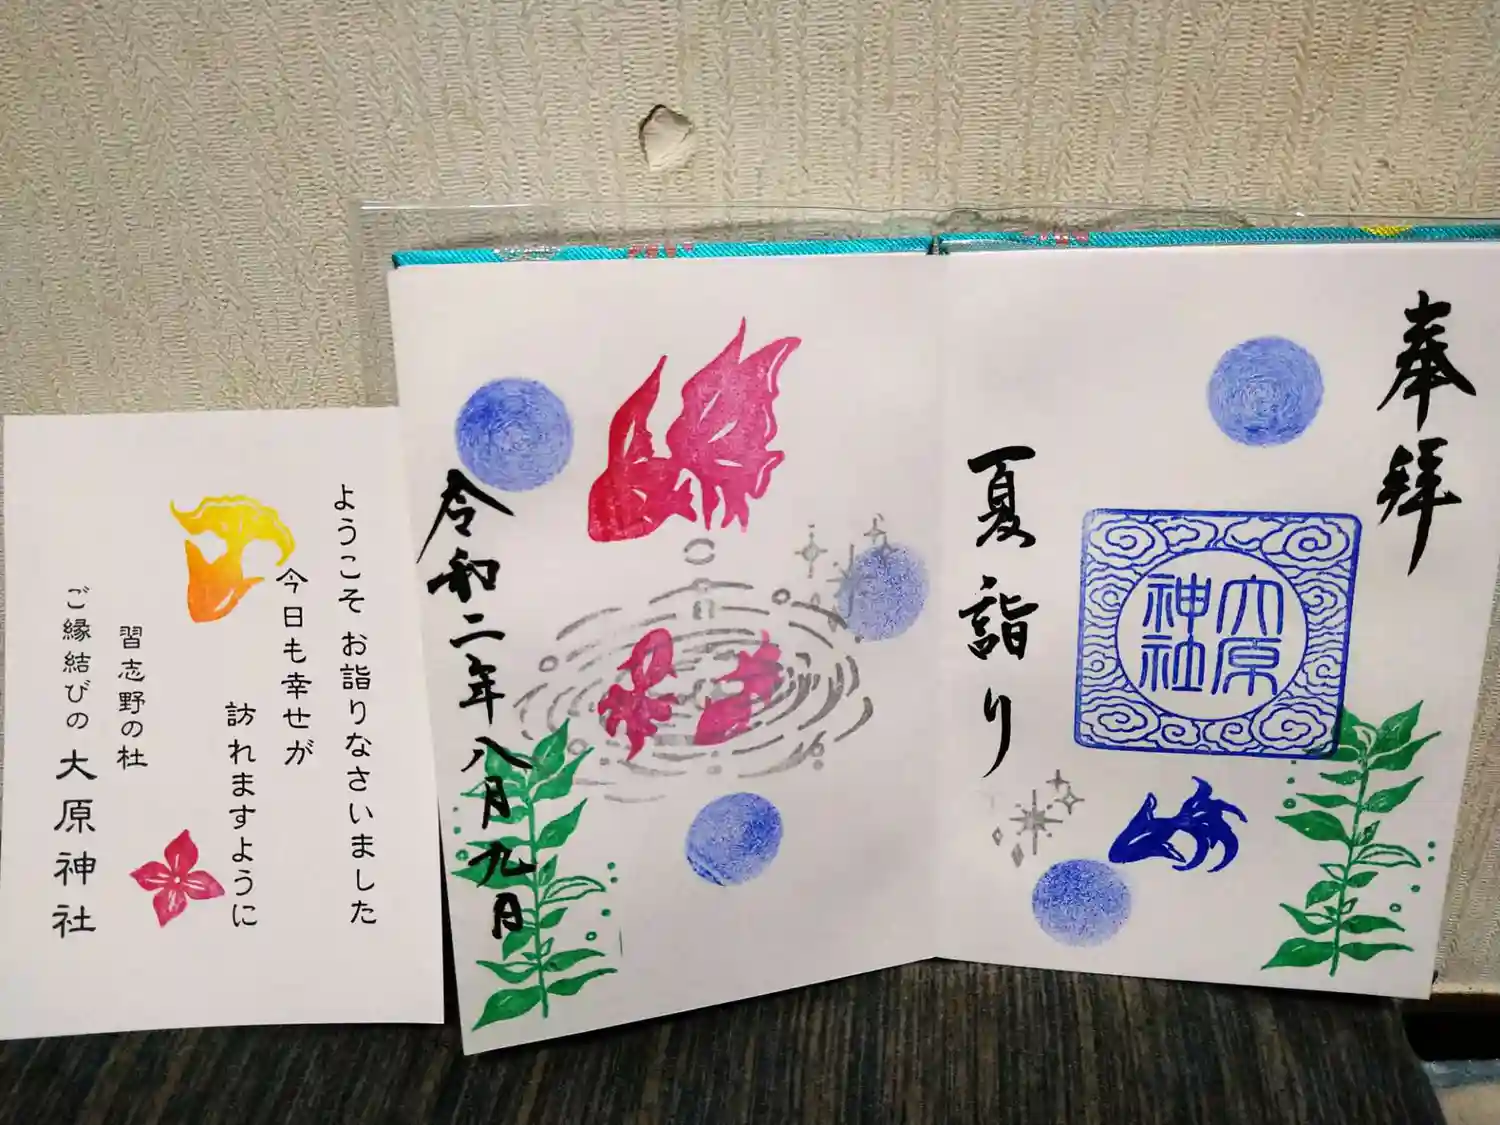 奉拝
大原
神社
夏詣り
令和二年八月九日
ようこそ お詣りなさいました
今日も幸せが
訪れますように
習志野の杜
ご縁結びの 大原神社